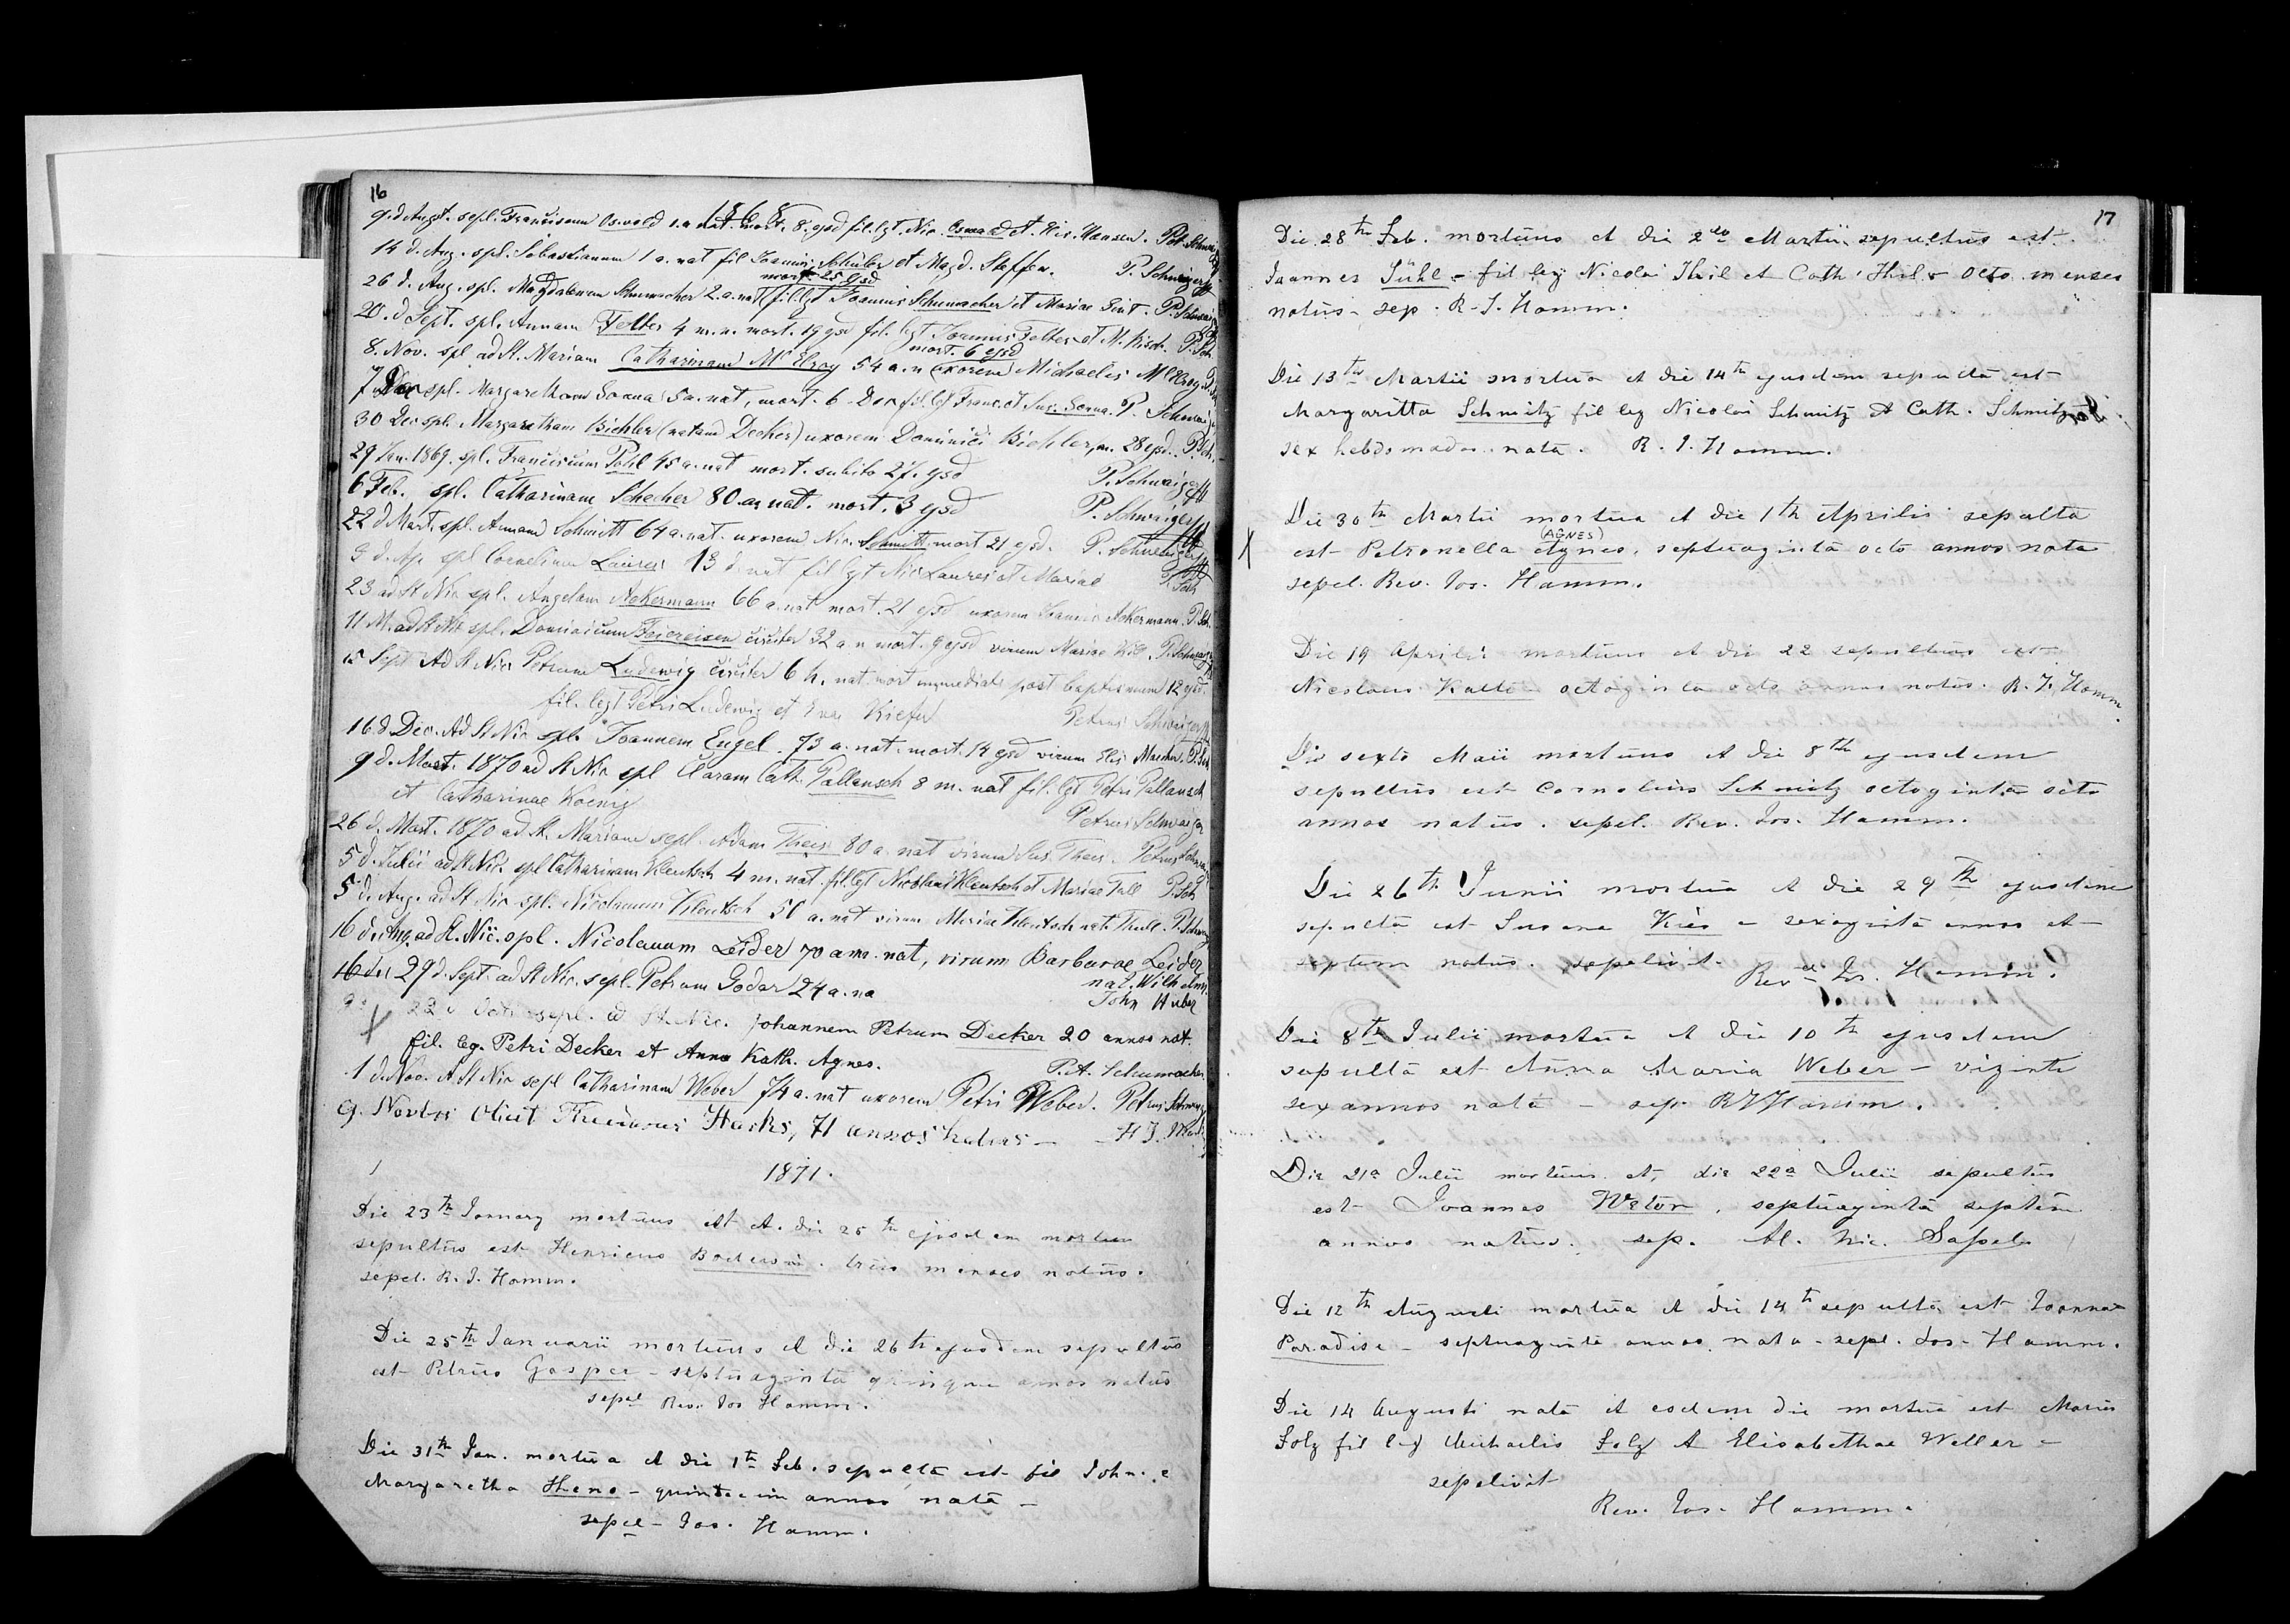 16
1868
9. d. Augt. sepl. Franciscum Oswald 1. a. nat. mort. 8. ejsd fil. lgt. Nic. Oswald et Hansen. Pet. Schwaiger
14 d. Aug. spl. Sebastianum 1 a. nat fil Joannis Schüler et Magd. Steffen. P. Schwaiger
mort 25 ejsd
26 d. Aug. spl. Magdalenam Schumacher 2. a. nat fil. lgt Joannis Schumacher et Mariae Gint. P. Schwaiger
20. d Sept. spl. Annam Felten 4 m. n. mort. 19 ejsd fil. lgt. Joannis Felten et M. Risch. P. Sch.
mort. 6 ejsd
8. Nov. spl ad St. Mariam Catharinam Mc Elroy 54 a. n uxorem Michaelis McElroy P. Sch
7 Dec spl. Margaretham Sonna 5 a. nat, mort. 6 Dec fil. lgt Franc. et Sus. Sonna. P. Schwaiger
30 Dec spl. Margaretham Bichler (natam Decker) uxorem Dominici Bichler, m. 28 ejsd. P. Sch.
29 Jan. 1869. spl. Franciscum Pohl 45 a. nat mort. subito 27. ejsd P. Schwaiger
6 Feb. spl. Catharinam Schecher 80. a. nat. mort. 3 ejsd P. Schwaiger
22 d Mart. spl. Annam Schmitt 64 a. nat. uxorem Nic. Schmitt mort 21 ejsd. P. Schwaiger
3 d. Ap. spl Cornelium Laures 13 d. nat fil lgt Nic Laures et Mariae P. Sch
23 ad St Nic spl. Angelam Ackermann 66 a. nat mort. 21 ejsd uxorem Joannis Ackermann. P. Sch.
11 M. ad St Nic spl. Dominicum Feiereisen circiter 32 a n mort. 9 ejsd virum Mariae P. Schwaiger
15 Sept Ad St Nic Petrum Ludewig circiter 6 h. nat. mort immediate post baptismum 12 ejsd.
fil. legt Petri Ludewig et Evae Kiefer Petrus Schwaiger
16 d Dec. Ad St Nic spl. Joannem Engel. 73 a. nat. mort. 14 ejsd virum Elis Maecher. P. Sch
9 d. Mart. 1870 ad St Nic spl Claram Cath. Pallansch 8 m. nat fil. lgt Petri Pallansch
et Catharinae Koenig Petrus Schwaiger
26 d. Mart. 1870 ad St. Mariam sepl. Adam Theis 80 a. nat virum Sus. Theis. Petrus Schwaiger
5 d. Julii ad St Nic. spl Catharinam Klentsch 4 m. nat. fil. lgt Nicolaus Klentsch et Mariae Tull P. Sch
5 d. Aug. ad St Nic spl. Nicolaum Klentsch 50 a. nat virum Mariae Klentsch nat. Thull. P. Schwaig
16 d. Aug. ad St. Nic. spl. Nicolaum Leider 70 ann. nat, virum Barbarae Leider
nat. Wilhelmy.
29 d. Sept. ad St Nic. sepl. Petrum Godar 24 a. na John Huber
X 22 d Octr sepl. ad St. Nic. Johannem Petrum Decker 20 annos nat.
fil. leg. Petri Decker et Anna Kath. Agnes. P. A. Schumacher
1 d. Nov. Ad St Nic sepl Catharinam Weber 74 a. nat uxorem Petri Weber. Petrus Schwaig
9. Novbri Obiit Theodorus Harks, 71 annos natus — H J.
1871.
Die 23th January mortuus est et die 25th ejusdem
sepultus est Henricus Bodewin. tres menses natus.
sepel. R. J. Hamm.
Die 25th Januarii mortuus et die 26th ejusdem sepultus
est Petrus Gasper - septuaginta quinque annos natus
sepel Rev. Jos Hamm.
Die 31th Jan. mortua et die 1th Feb. sepulta est fil John.
Margaretha Heno - quindecim annos nata -
sepel - Jos. Hamm.
17
Die 28th Feb. mortuus et die 2do Martii sepultus est
Joannes Jühl - fil leg Nicolai Thil et Cath. Thil - octo menses
natus - sep. R. J. Hamm.
Die 13th Martii mortua et die 14th ejusdem sepulta est
Margaritta Schmitz fil leg Nicolai Schmitz et Cath. Schmitz
sex hebdomadas nata. R. J. Hamm.
Die 30th Martii mortua et die 1th Aprilis sepulta
(AGNES)
X est Petronella Agnes. septuaginta octo annos nata
sepel. Rev. Jos. Hamm.
Die 19 Aprilis mortuus et die 22 sepultus est
Nicolaus Kalte octoginta octo annos natus. R. J. Hamm.
Die sexto Maii mortuus et die 8th ejusdem
sepultus est Cornelius Schmitz octoginta octo
annos natus. sepel. Rev. Jos. Hamm.
Die 26th Junii mortua et die 29th ejusdem
sepulta est Susana Kies - sexaginta annos et
septem natus. sepelivit
Revd Jos. Hamm.
Die 8th Julii mortua et die 10th ejusdem
sepulta est Anna Maria Weber - viginti
sex annos nata - sep. R J Hamm.
Die 21a Julii mortuus et, die 22a Julii sepultus
est Joannes Weton, septuaginta septem
annos natus. sep. Al. Nic. Sassel
Die 12th Augusti mortua et die 14th sepulta est Joanna
Paradise - septuaginta annos nata - sepl. Jos. Hamm.
Die 14 Augusti nata et eodem die mortua est Maria
Folz fil leg Michaelis Folz et Elisabethae Weller -
sepelivit
Rev. Jos. Hamm.